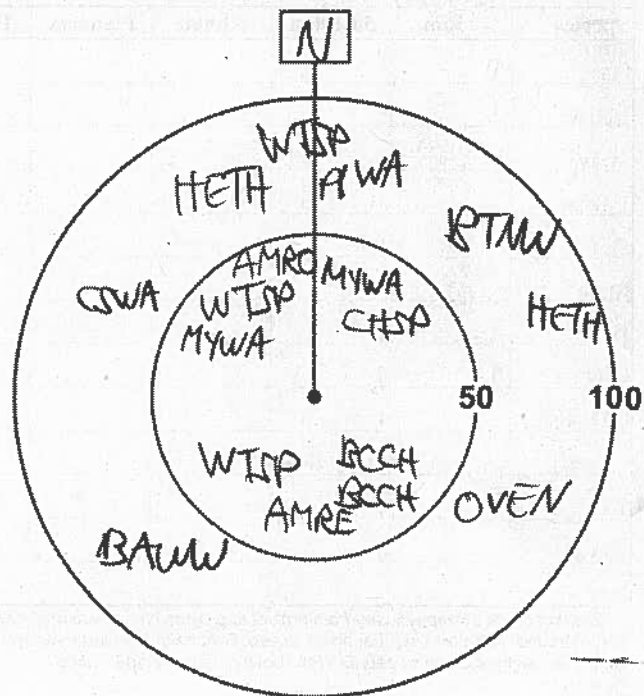 N
WTSP
HETH PIWA
BTNW
AMRO MYWA
CSWA WTSP CHSP HETH
MYWA
50 100
WTSP BCCH
BCCH OVEN
AMRE
BAWW